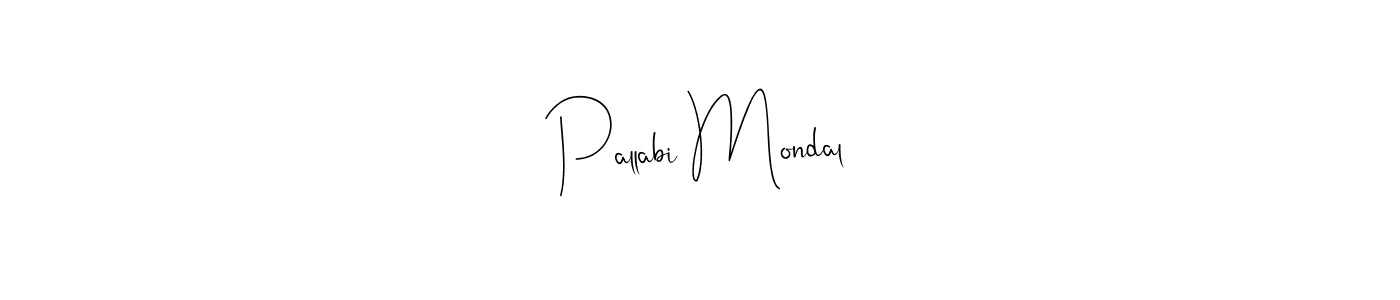 Pallabi Mondal